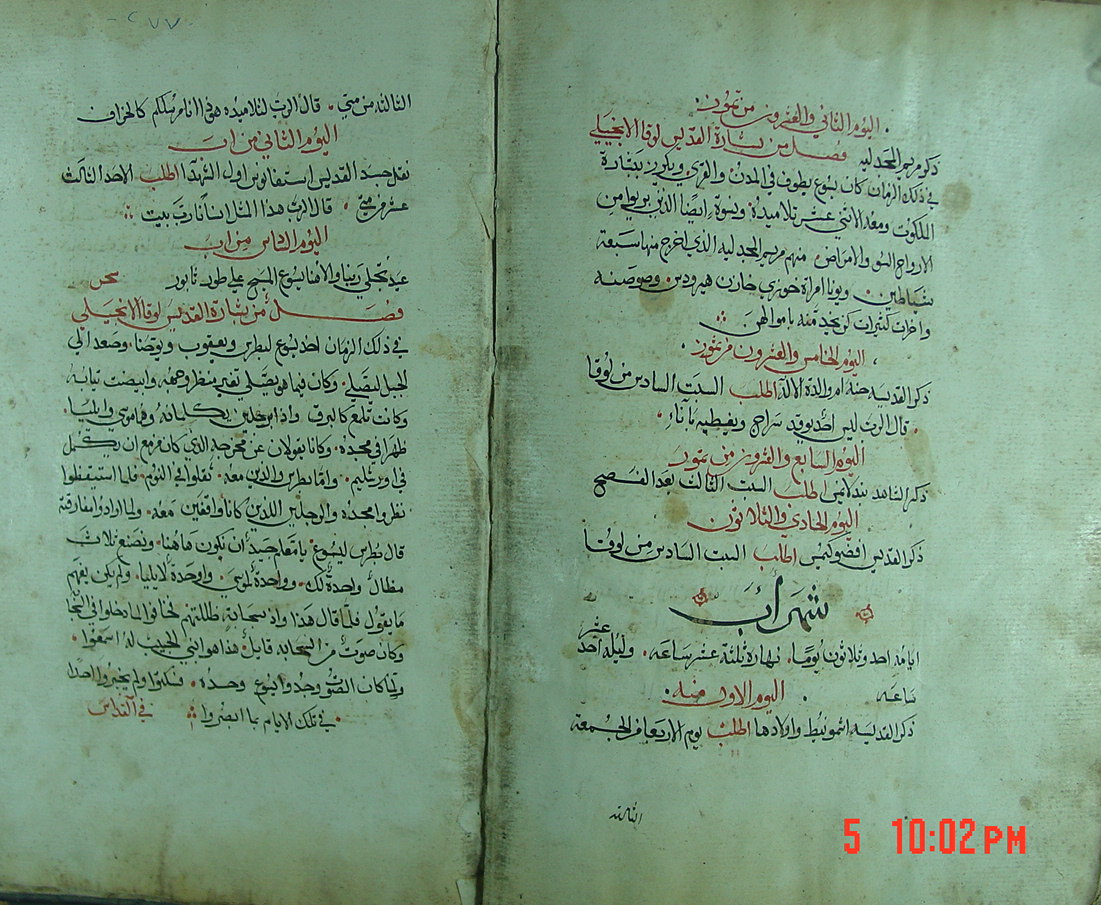 اليوم الثاني والعشرون من تموز
ذكر مريم المجدليه فصل من بشارة القديس لوقا الانجيلي
في ذلك الزمان كان يسوع يطوف في المدن والقرى ويكرز ببشارة
الملكوت ومعه الاثني عشر تلاميذه ونسوة ايضا الذين بريوا من
الارواح السو والامراض منهم مريم المجدليه الذي اخرج منها سبعة
شياطين ويونا امراة خوزي خازن هيرودس وصوصنه
واخرات كثيرات كن يخدمنه باموالهن
اليوم الخامس والعشرون من تموز
ذكر القديسه حنه ام والدة الاله اطلب السبت السادس من لوقا
قال الرب ليس احد يوقد سراج ويغطيه باناء
اليوم السابع والعشرون من تموز
ذكر الشاهد بندلايمن اطلب السبت الثالث بعد الفصح
اليوم الحادي والثلاثون
ذكر القديس افضوكيمس اطلب السبت السادس من لوقا
شهر اب
ايامه احد وثلاثون يوما نهاره ثلثة عشر ساعه وليله احد عشر
ساعه اليوم الاول منه
ذكر القديسه اشمونيط واولادها اطلب يوم الاربعا من الجمعة
الثالثه
٢٧٧
الثالثه من متى قال الرب لتلاميذه هوذا انا مرسلكم كالخراف
اليوم الثاني من اب
نقل جسد القديس استفانوس اول الشهدا اطلب الاحد الثالث
عشر من متى قال الرب هذا المثل انسانا رب بيت
اليوم السادس من اب
عيد تجلي ربنا والاهنا يسوع المسيح على طور ثابور سحر
فصل من بشارة القديس لوقا الانجيلي
في ذلك الزمان اخذ يسوع لبطرس ويعقوب ويوحنا وصعد الى
الجبل ليصلي وكان فيما هو يصلي تغير منظر وجهه وابيضت ثيابه
وكانت تلمع كالبرق واذا برجلين يكلمانه وهما موسى وايليا
ظهرا في مجده وكانا يقولان عن مخرجه الذي كان مزمع ان يكمل
في اورشليم واما بطرس والذين معه ثقلوا في النوم فلما استيقظوا
نظروا مجده والرجلين اللذين كانا واقفين معه ولما ارادوا مفارقته
قال بطرس ليسوع يا معلم جيد ان نكون هاهنا ونصنع ثلاث
مظال واحدة لك وواحدة لموسى وواحدة لايليا ولم يكن يفهم
ما يقول فلما قال هذا واذ سحابة ظللتهم فخافوا لما دخلوا في السحابة
وكان صوت من السحابه قايل هذا هو ابني الحبيب له اسمعوا
ولما كان الصوت وجدوا يسوع وحده فسكتوا ولم يخبروا احدا
في تلك الايام بما ابصروا في القداس
5 10:02 PM